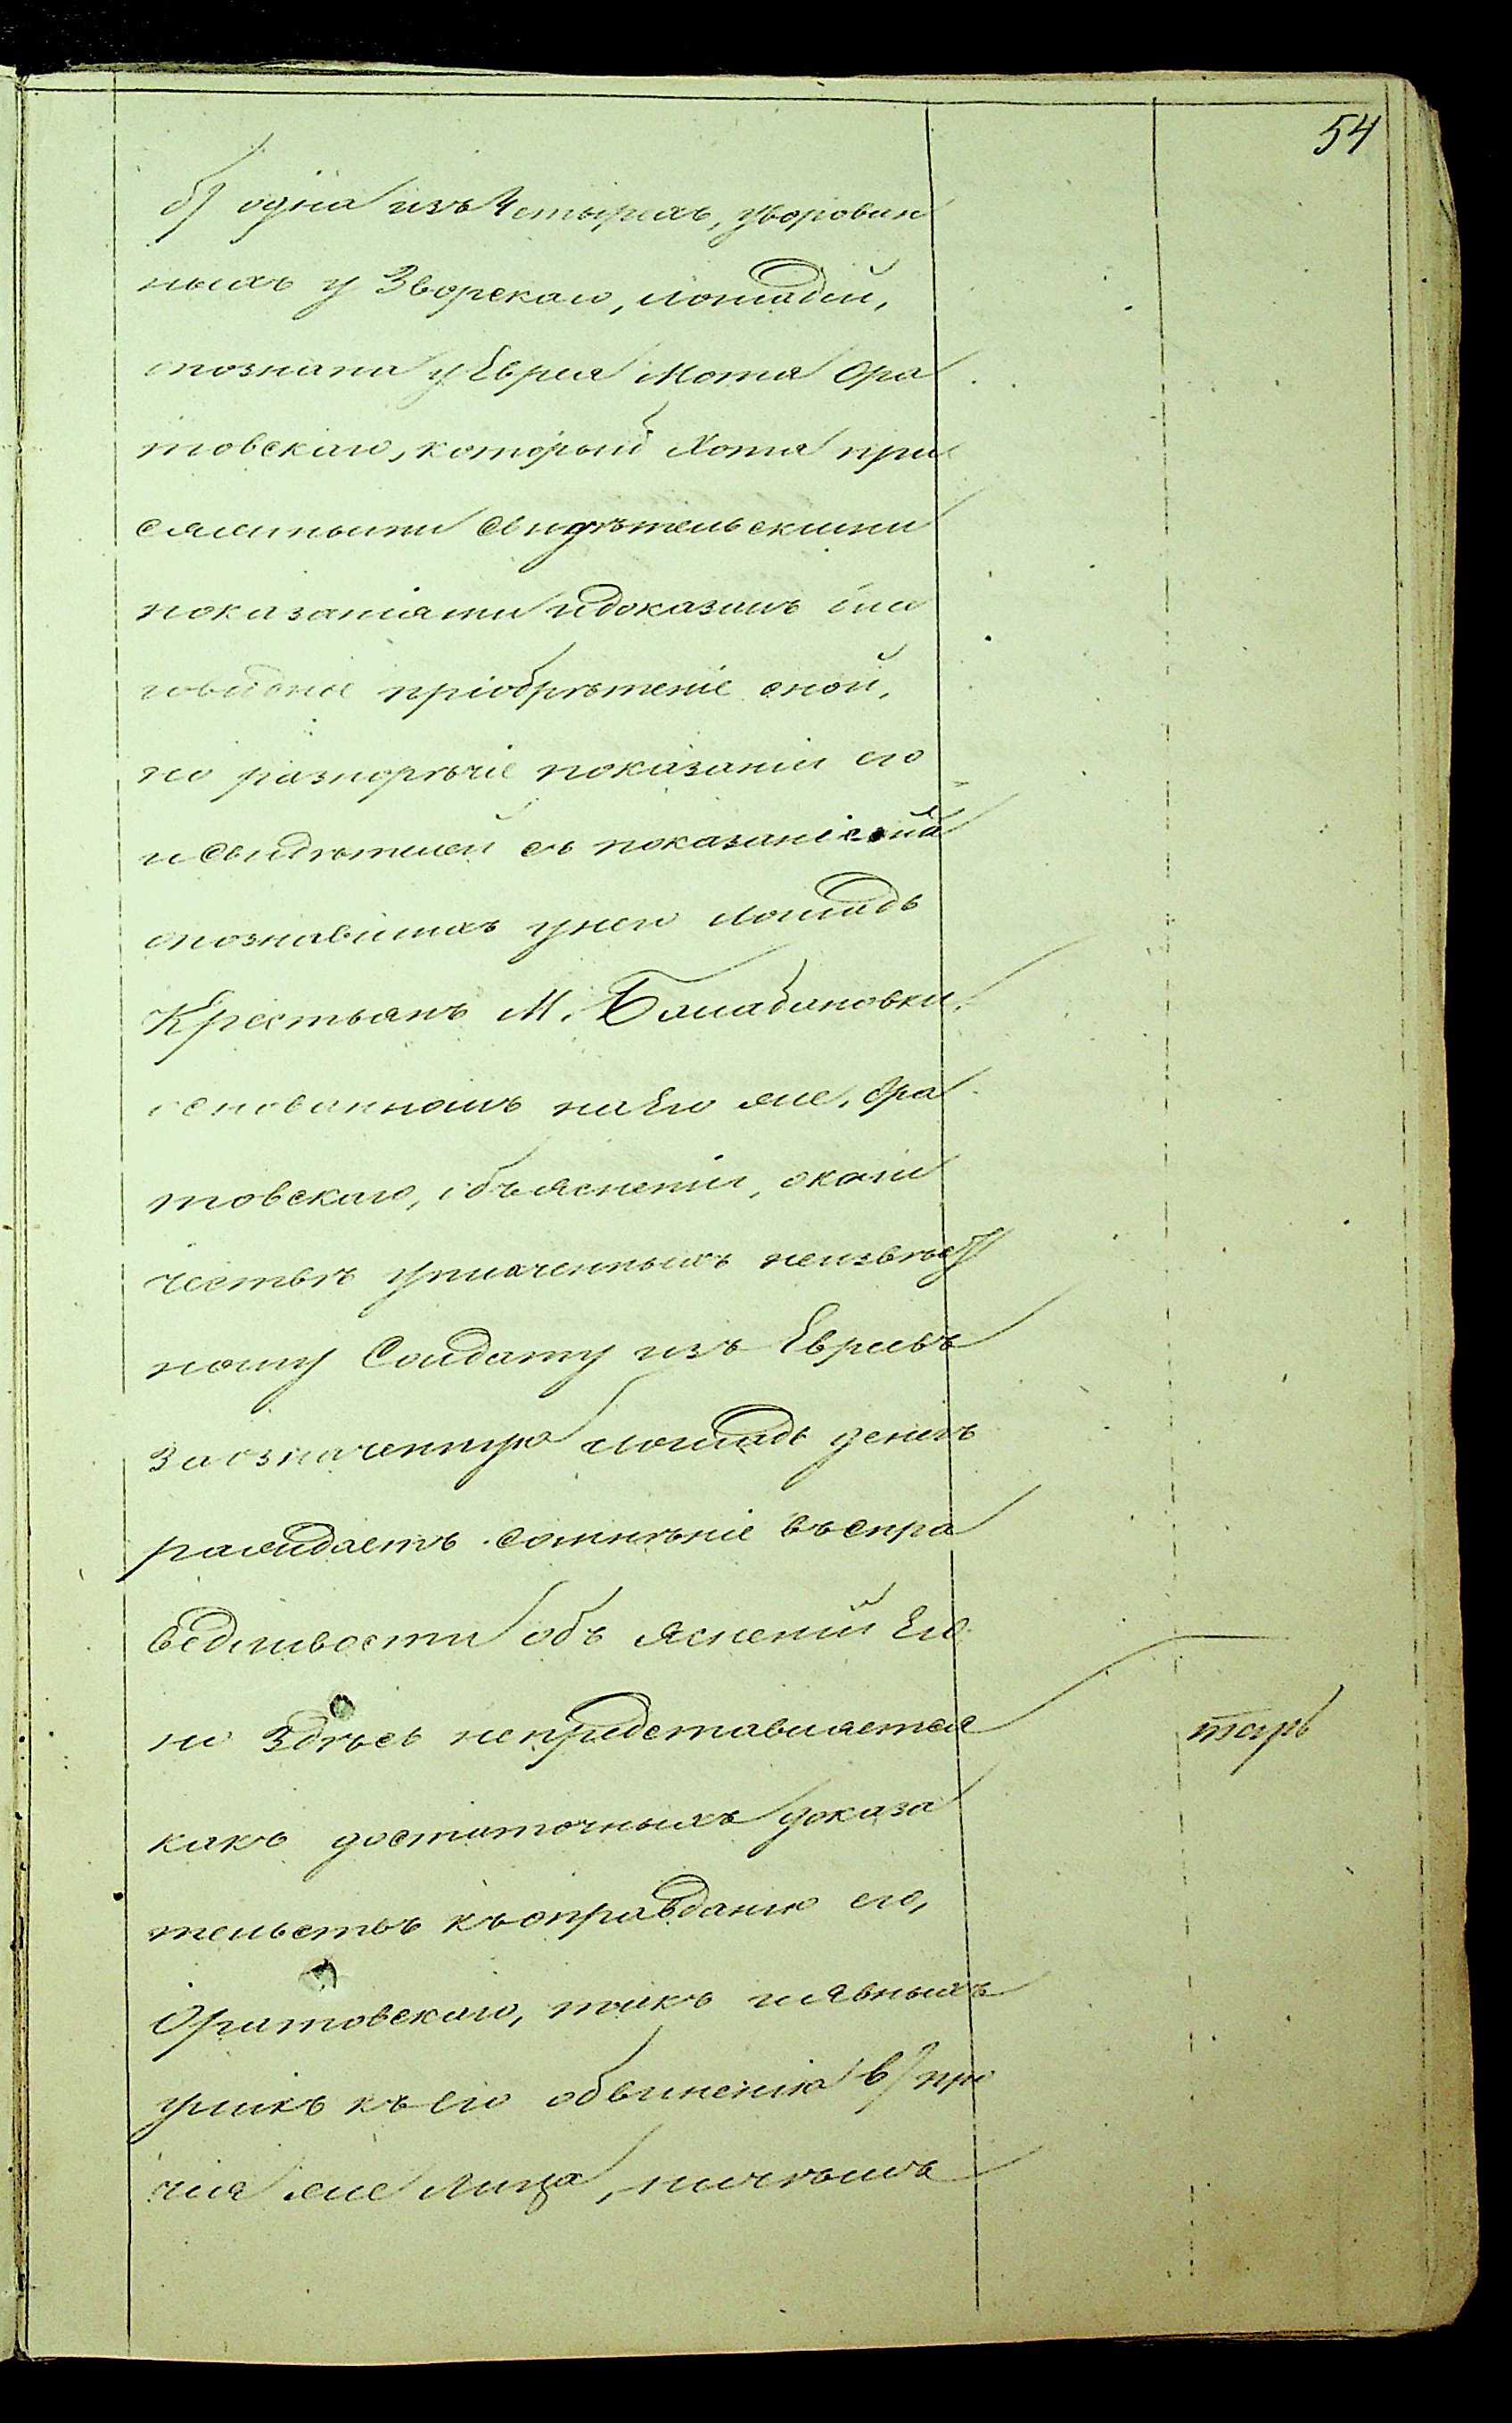 54
б) одна изъ Четырехъ, уворован
ныхъ у Зворскаго, лошадей,
опознана у Еврея Мотя Ора
товскаго, который Хотя при
сяжными свидѣтельскими
показаніями и доказалъ бла
говидное пріобрѣтеніе оной,
но разнорѣчіе показанія его
и свидѣтелей съ показаніемъ
опознавшихъ у него лошадь
Крестьянъ М. Балабановки,
основанномъ на Его же, Ора
товскаго, объясненіи, о коли
чествѣ уплаченныхъ неизвѣст
ному Солдату изъ Евреевъ
за означенную лошадь денегъ
раждаетъ сомнѣніе въ спра
ведливости объ ясненій Его
но Здѣсь непредставляется
какъ достаточныхъ доказа
тельствъ къ оправданію его,
Оратовскаго, такъ и явныхъ
уликъ къ его обвиненію в) про
чія же Лица, ничѣмъ